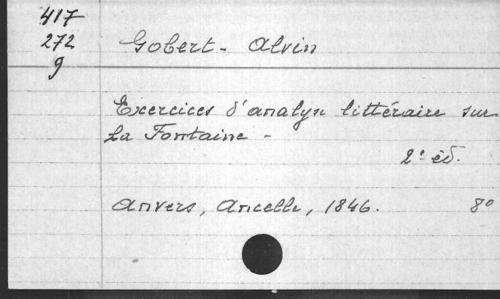 417
272
9
Gobert - Alvin
Exercices d'analyse littéraire sur
La Fontaine -
2e éd.
Anvers, Ancelle, 1846. 8°